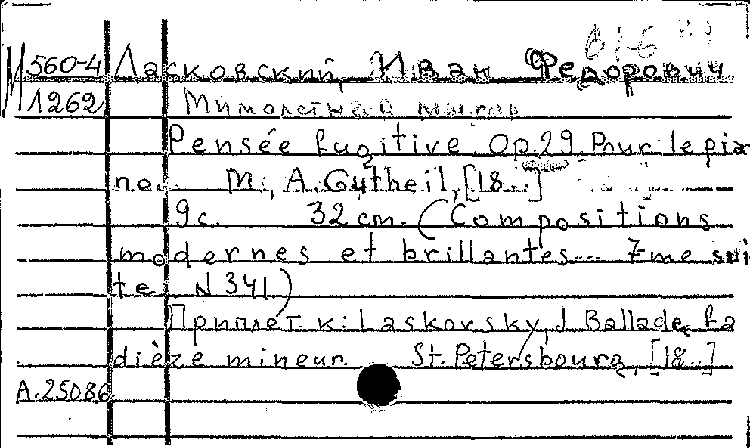 M 560-4 Ласковский, Иван Федорович
1269 Мимолетная мысль
Pensée fugitive. Op. 29. Pour le pia
no. M., A. Gutheil, [18..]
9 с. 32 см. (Compositions
modernes et brillantes... 7me sui
te N 341)
Приплёт к: Laskovsky, J. Ballade. Fa
dièze mineur. St. Petersbourg, [18..]
А.25086